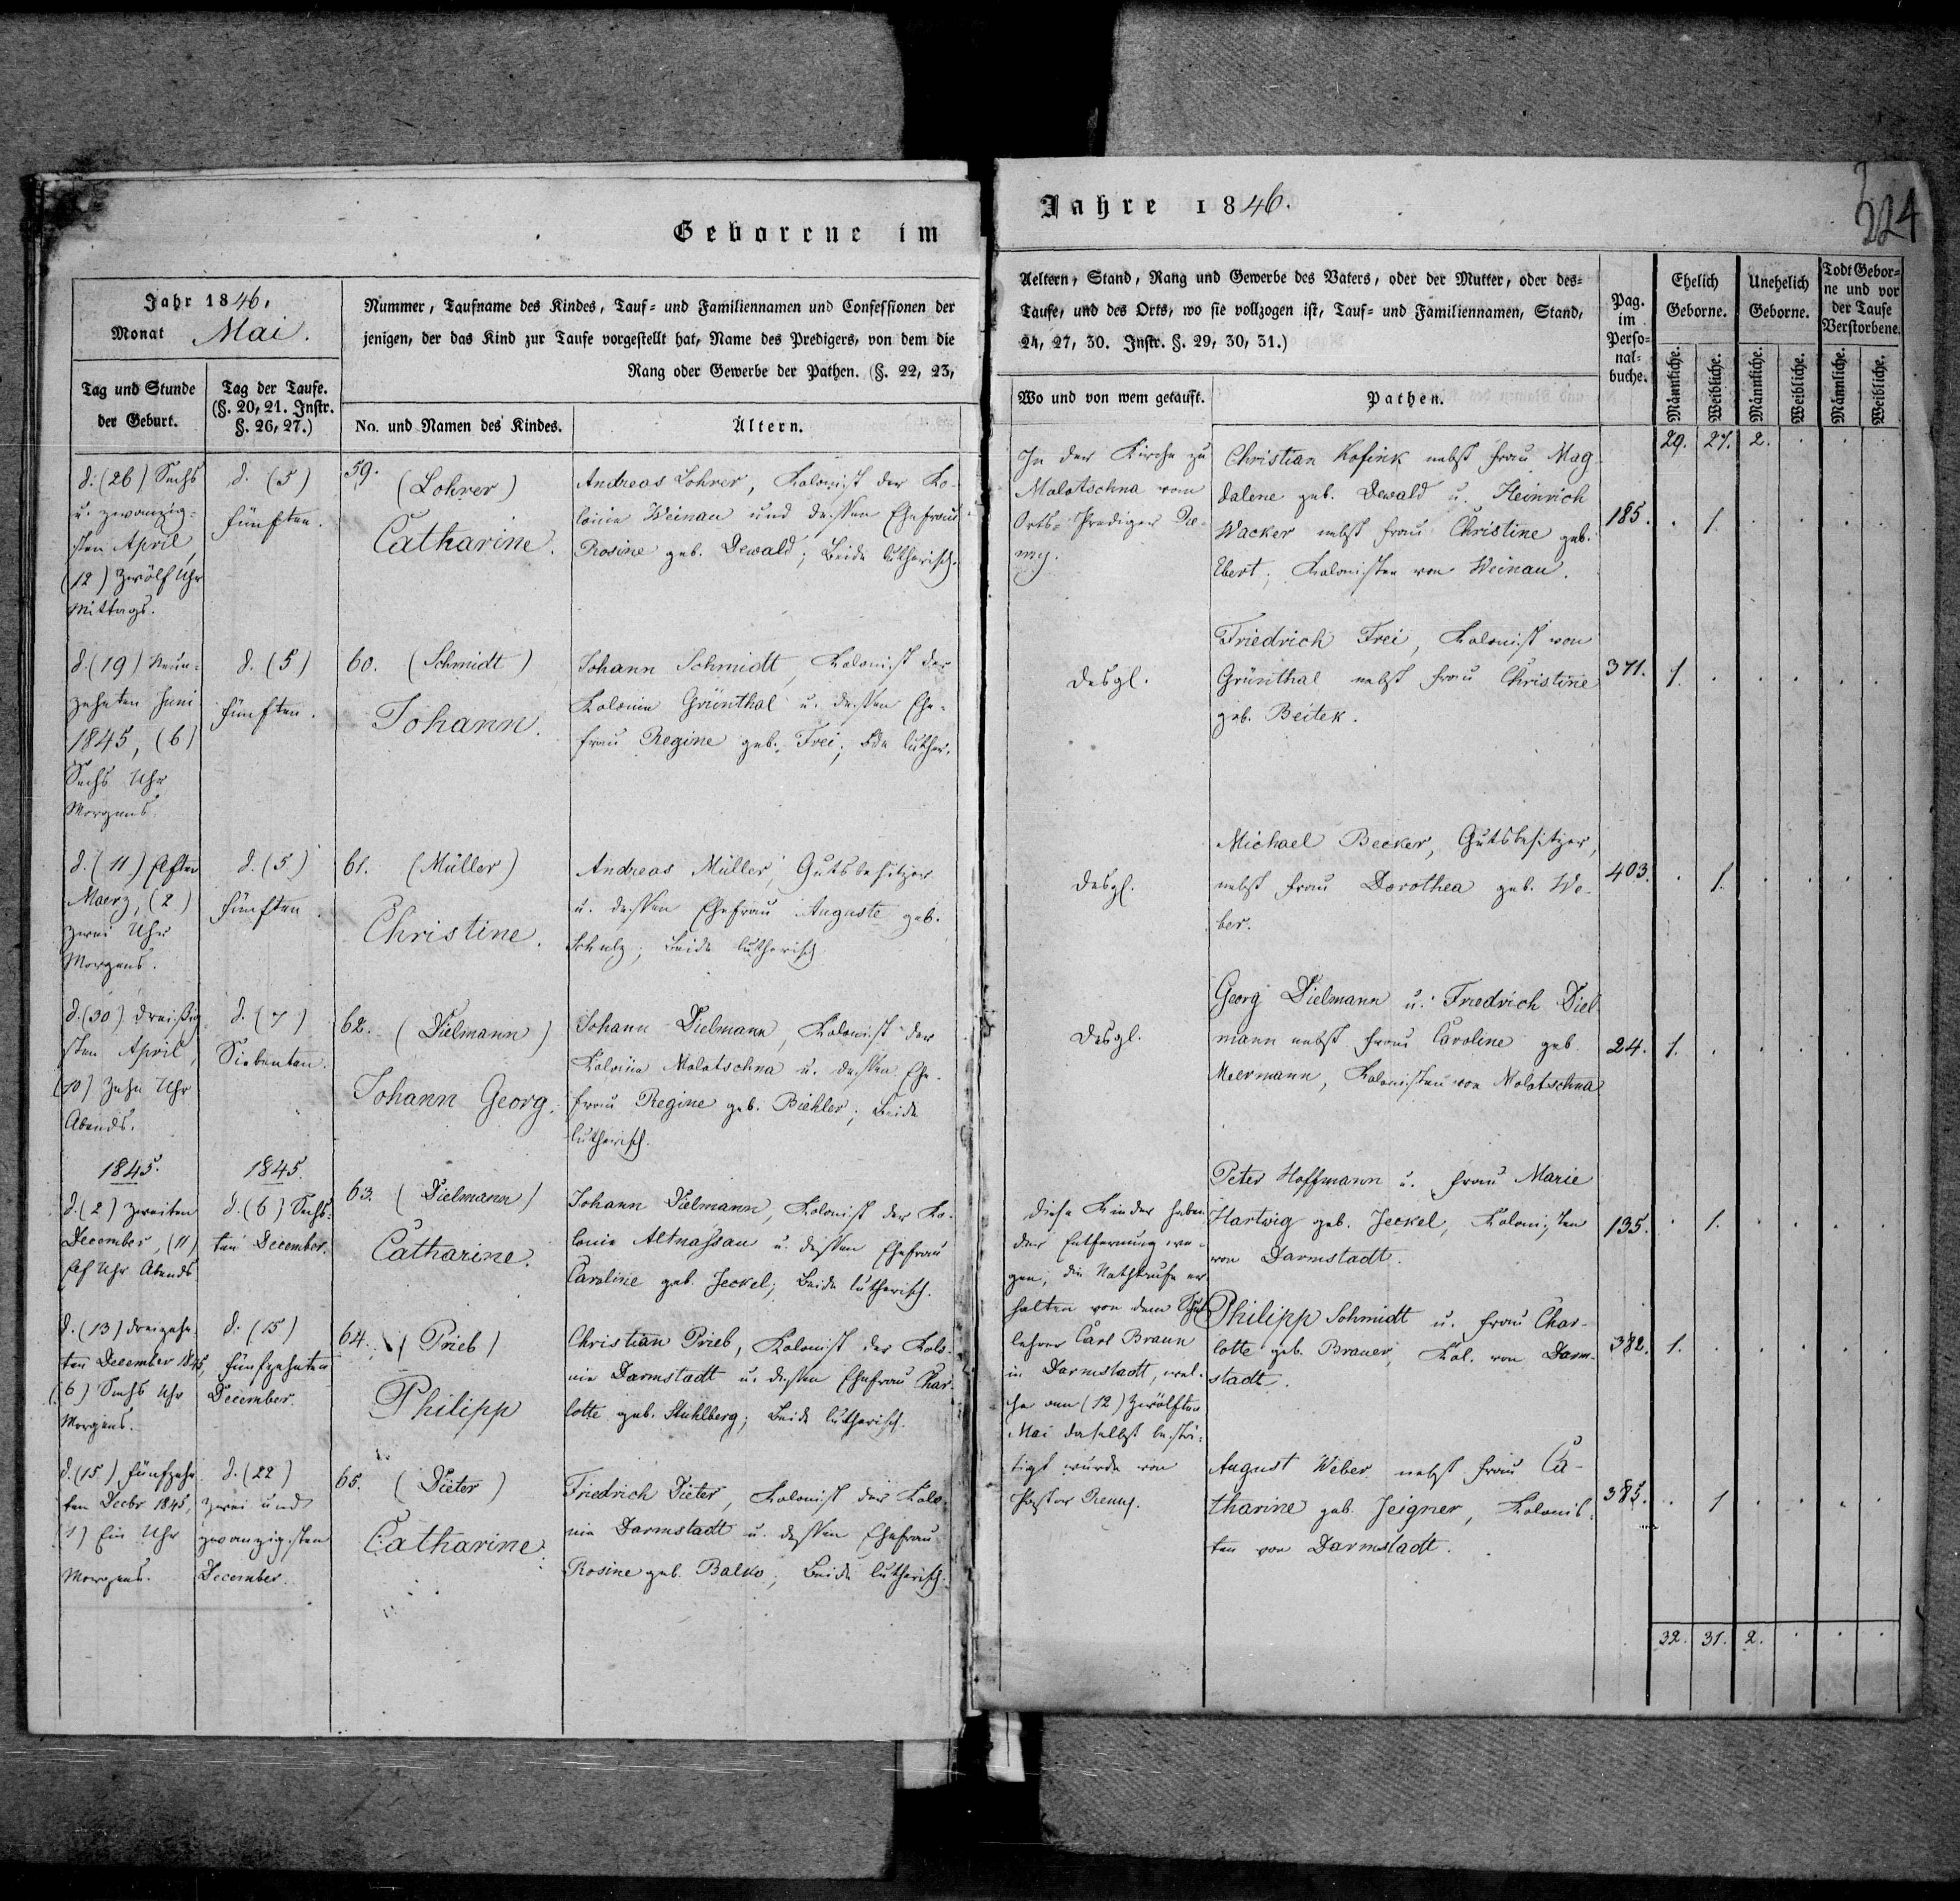 Geborene im
Jahre 1846.
224
Jahr 1846.
Monat Mai.
Tag und Stunde
der Geburt.
Tag der Taufe.
(§. 20, 21. Instr.
§. 26, 27.)
Nummer, Taufname des Kindes, Tauf- und Familiennamen und Confessionen der
jenigen, der das Kind zur Taufe vorgestellt hat, Name des Predigers, von dem die
Rang oder Gewerbe der Pathen. (§. 22, 23,
No. und Namen des Kindes.
Ältern.
Aeltern, Stand, Rang und Gewerbe des Vaters, oder der Mutter, oder des-
Taufe, und des Orts, wo sie vollzogen ist, Tauf- und Familiennamen, Stand,
24, 27, 30. Instr. §. 29, 30, 31.)
Wo und von wem getauft.
Pathen.
Pag.
im
Perso-
nal-
buche.
Ehelich
Geborne.
Unehelich
Geborne.
Todt Gebor-
ne und vor
der Taufe
Verstorbene.
Männliche.
Weibliche.
Männliche.
Weibliche.
Männliche.
Weibliche.
29. 27. 2. . . .
d. (26) Sechs
u. zwanzig-
sten April,
(12) zwölf Uhr
Mittags.
d. (5)
fünften.
59.
(Lohrer)
Catharine.
Andreas Lohrer, Kolonist der Ko-
lonie Weinau und dessen Ehefrau
Rosine geb. Dewald; Beide lutherisch.
In der Kirche zu
Molotschna vom
Orts-Prediger
Christian Kofink nebst Frau Mag-
dalene geb. Dewald u. Heinrich
Wacker nebst Frau Christine geb.
Ebert; Kolonisten von Weinau.
185. . 1. . . . .
d. (19) Neun-
zehnten Juni
1845, (6)
Sechs Uhr
Morgens.
d. (5)
fünften.
60. (Schmidt)
Johann.
Johann Schmidt, Kolonist der
Kolonie Grünthal u. dessen Ehe-
frau Regine geb. Frei; Bde luther.
desgl.
Friedrich Frei, Kolonist von
Grünthal nebst Frau Christine
geb. Beitek.
371. 1. . . . . .
d. (11) elften
Maerz, (2)
zwei Uhr
Morgens.
d. (5)
fünften.
61. (Müller)
Christine.
Andreas Müller, Gutsbesitzer
u. dessen Ehefrau Auguste geb.
Schulz; Beide lutherisch.
desgl.
Michael Becker, Gutsbesitzer,
nebst Frau Dorothea geb. We-
ber.
403. . 1. . . . .
d. (30) dreißig-
sten April,
(10) Zehn Uhr
Abends.
d. (7)
Siebenten.
62. (Dielmann)
Johann Georg.
Johann Dielmann, Kolonist der
Kolonie Molotschna u. dessen Ehe-
frau Regine geb. Biehler; Beide
lutherisch.
desgl.
Georg Dielmann u. Friedrich Diel-
mann nebst Frau Caroline geb.
Meermann, Kolonisten von Molotschna
24. 1. . . . . .
1845.
d. (2) zweiten
December, (11)
elf Uhr Abends
1845.
d. (6) Sechs-
ten December.
63. (Dielmann)
Catharine.
Johann Dielmann, Kolonist der Ko-
lonie Altnassau u. dessen Ehefrau
Caroline geb. Jeckel; Beide lutherisch.
Diese Kinder haben
der Entfernung we-
gen, die Nothtaufe er-
halten von dem Schul-
lehrer Carl Braun
in Darmstadt, wel-
che am (12) zwölften
Mai daselbst bestä-
tigt wurde von
Pastor
Peter Hoffmann u. Frau Marie
Hartwig geb. Jeckel, Kolonisten
von Darmstadt.
135. . 1. . . . .
d. (13) dreizehn-
ten December 1845,
(6) Sechs Uhr
Morgens.
d. (15)
fünfzehnten
December.
64. (Prieb)
Philipp
Christian Prieb, Kolonist der Kolo-
nie Darmstadt u. dessen Ehefrau Char-
lotte geb. Stuhlberg; Beide lutherisch.
Philipp Schmidt u. Frau Char-
lotte geb. Brauer, Kol. von Darm-
stadt.
382. 1. . . . . .
d. (15) fünfzehn-
ten Decbr 1845,
(1) Ein Uhr
Morgens.
d. (22)
zwei und
zwanzigsten
December.
65. (Dieter)
Catharine.
Friedrich Dieter, Kolonist der Kolo-
nie Darmstadt u. dessen Ehefrau
Rosine geb. Balko; Beide lutherisch.
August Weber nebst Frau Ca-
tharine geb. Zeigner, Kolonis-
ten von Darmstadt.
385. . 1 . . . .
32. 31. 2. . . .